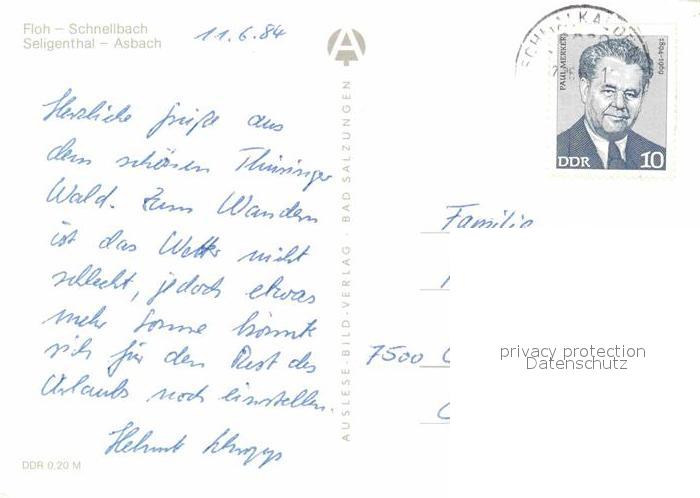 Floh – Schnellbach
Seligenthal – Asbach
11.6.84
Herzliche Grüße aus
dem schönen Thüringer
Wald. Zum Wandern
ist das Wetter nicht
schlecht, jedoch etwas
mehr Sonne könnte
sich für den Rest des
Urlaubs noch einstellen.
Helmut
DDR 0,20 M
AUSLESE-BILD-VERLAG · BAD SALZUNGEN
SCHMALKALDEN
PAUL MERKER
1894-1969
DDR 10
Familie
7500 C
privacy protection
Datenschutz